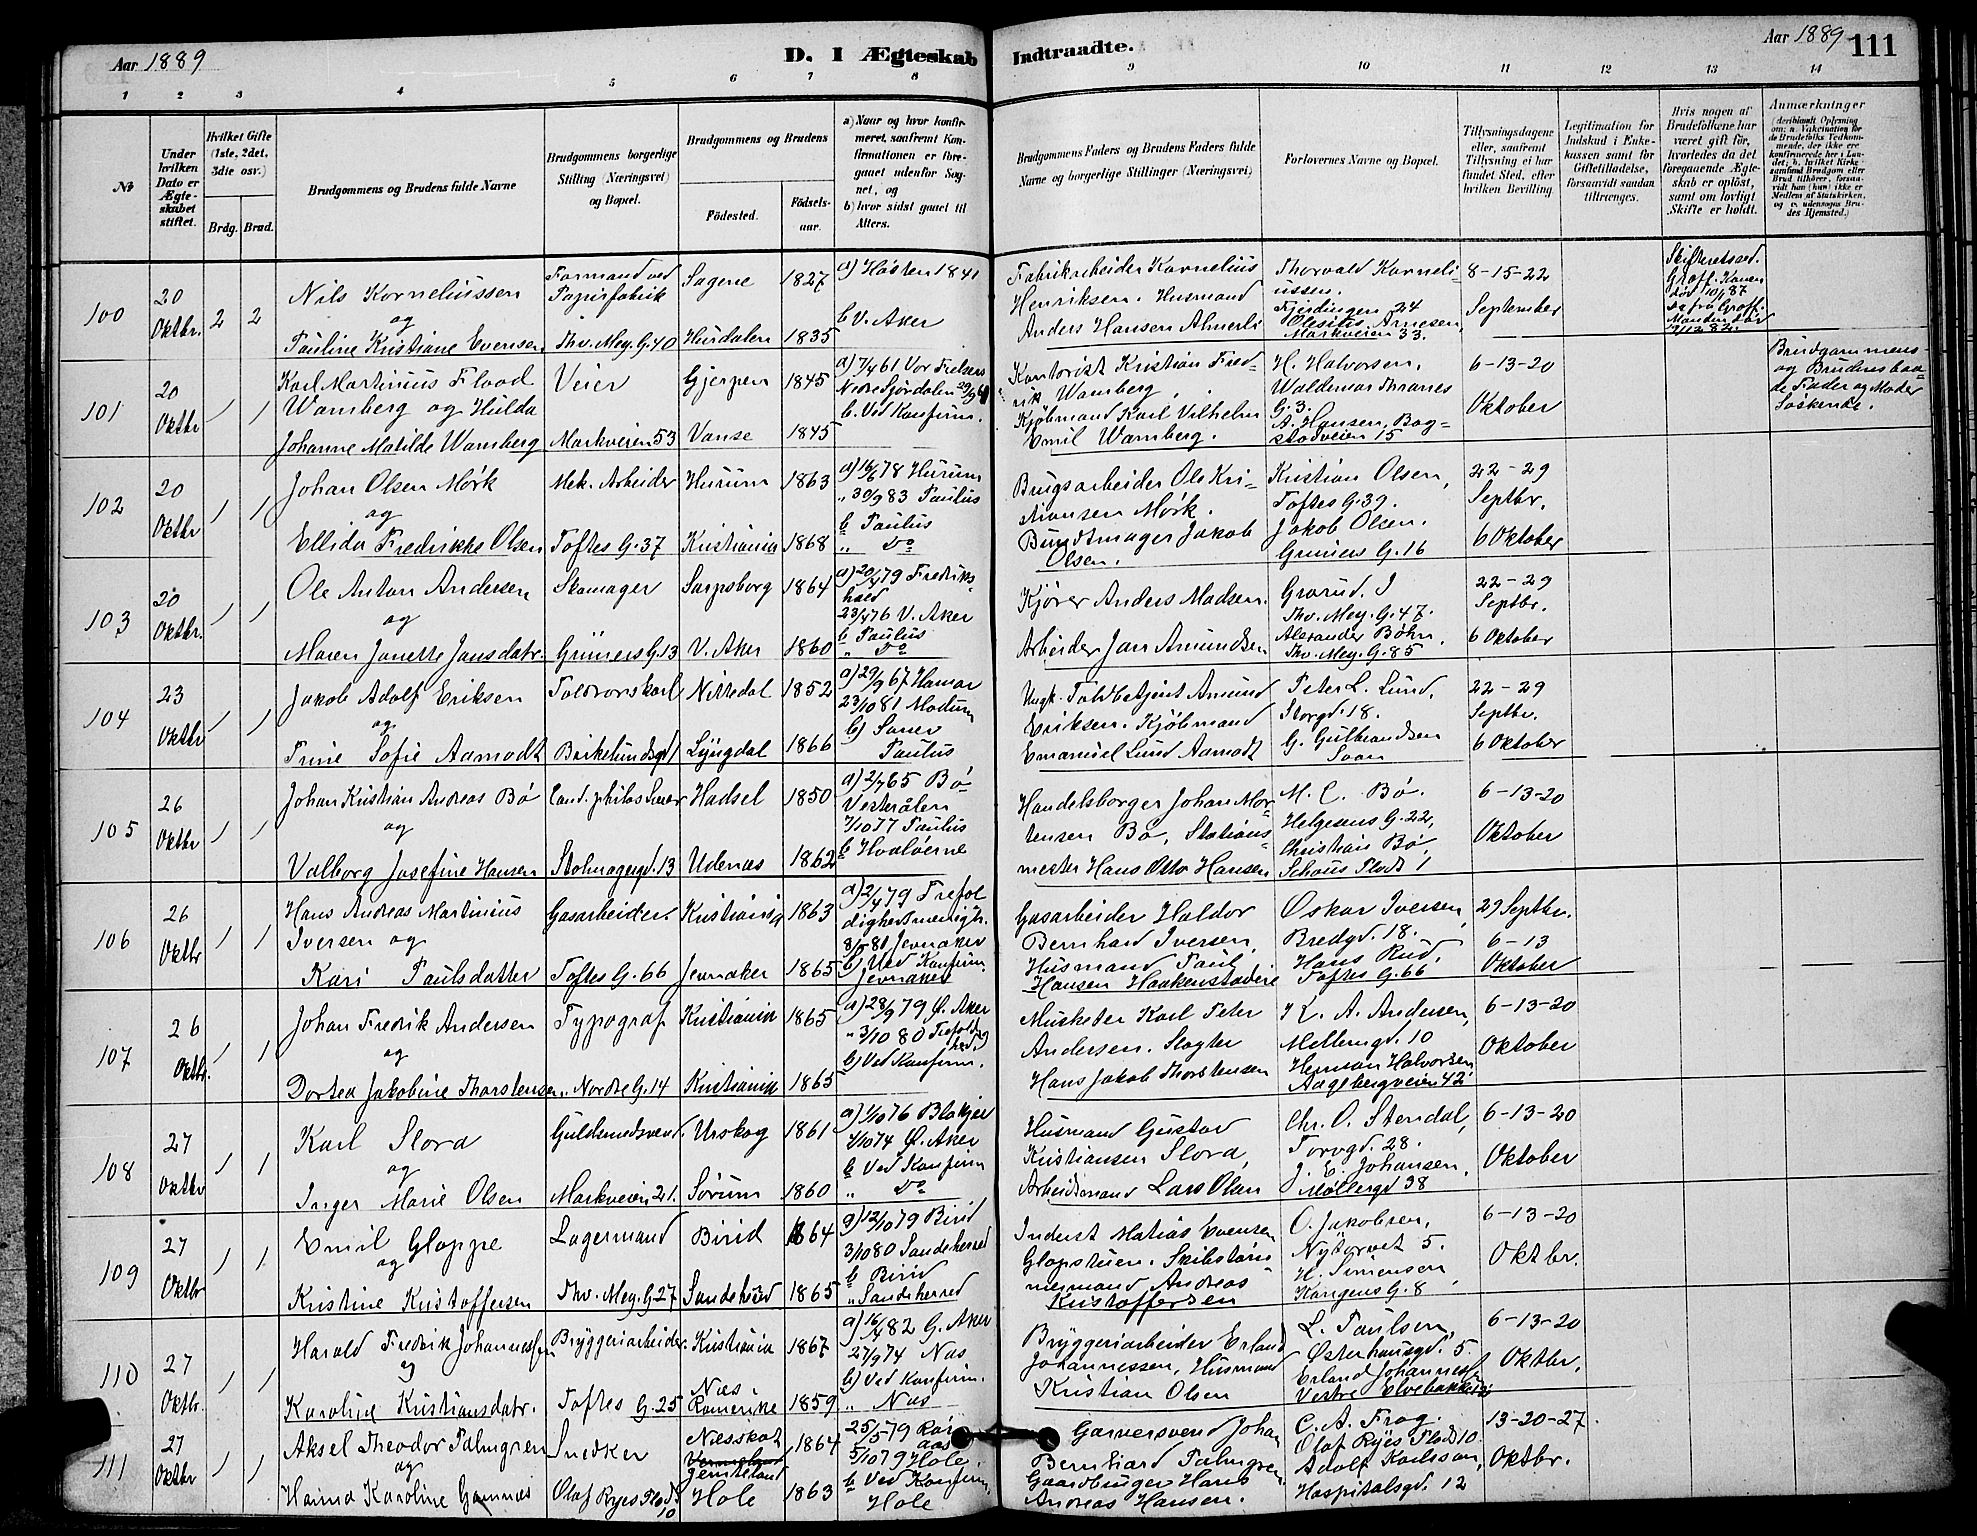 Aar 1889
D. I Ægteskab Indtraadte.
Aar 1889 111
1 2 3 4 5 6 7 8 9 10 11 12 13 14
No
Under hvilken Dato er Ægteskabet stiftet.
Hvilket Gifte (1ste, 2det, 3die osv.)
Brdg. Brud.
Brudgommens og Brudens fulde Navne
Brudgommens borgerlige Stilling (Næringsvei) og Bopæl.
Brudgommens og Brudens
Fødested.
Fødselsaar.
a) Naar og hvor konfirmeret, saafremt Konfirmationen er foregaaet udenfor Sognet, og
b) hvor sidst gaaet til Alters.
Brudgommens Faders og Brudens Faders fulde Navne og borgerlige Stillinger (Næringsvei)
Forlovernes Navne og Bopæl.
Tillysningsdagene eller, saafremt Tillysning ei har fundet Sted, efter hvilken Bevilling.
Legitimation for Indskud i Enkekassen samt for Giftetilladelse, forsaavidt saadan tiltrænges.
Hvis nogen af Brudefolkene har været gift før, hvorledes da det foregaaende Ægteskab er opløst, samt om lovligt Skifte er holdt.
Anmærkninger
100
20 Oktbr.
2 2
Nils Korneliussen
og
Pauline Kristiane Evensen
Formand ved Papirfabrik
Thv. Mey. G. 40
Sagene 1827
Hurdalen 1835
a) Høsten 1841
b V. Aker
Fabrikarbeider Kornelius
Henriksen. Husmand
Anders Hansen Almerli
Thorvald Korneliussen.
Fjerdingen 24
Arnesen,
Markveien 33.
8-15-22
September
101
20 Oktbr
1 1
Karl Martinius Flood
Wamberg og Hulda
Johanne Matilde Wamberg
Veier
Markveien 53
Gjerpen 1845
Vanse 1845
a) 7/4 61 Vor Frelsers
b. Ved Konfirm.
Kontorist Kristian Fredrik Wamberg,
Kjøbmand Karl Vilhelm
Emil Wamberg.
H. Halvorsen,
Waldemar Thranes
G. 3.
A. Hansen, Bogstadveien 15
6-13-20
Oktober
Brudgommens
og Brudens baade Fader og Moder
Søskende.
102
20 Oktbr
1 1
Johan Olsen Mørk
og
Ellida Fredrikke Olsen
Mek. Arbeider
Toftes G. 37
Hurum 1863
Kristiania 1868
a) 16/6 78 Hurum
" 30/9 83 Paulus
b Paulus
" Do
Brugsarbeider Ole Kristiansen Mørk.
Bundtmager Jakob
Olsen.
Kristian Olsen,
Toftes G. 39.
Jakob Olsen.
Grüners G. 16
22-29
Septbr.
6 Oktober
103
20 Oktbr.
1 1
Ole Anton Andersen
og
Maren Janette Jansdatr.
Skomager
Grüners G. 13
Sarpsborg 1864
V. Aker 1860
a) 20/4 79 Fredrikshald
23/4 76 V. Aker
b Paulus
" Do
Kjører Anders Madsen.
Arbeider Jan Amundsen
Grorud. I
Thv. Mey. G. 47.
Alexander Bøhn.
Thv. Mey. G. 85
22-29
Septbr.
6 Oktober
104
23 Oktbr
1 1
Jakob Adolf Eriksen
og
Trine Sofie Aamodt
Toldrorskarl
Birkelundsgt 1
Nittedal 1852
Lyngdal 1866
a) 29/9 67 Hamar
23/10 81 Modum
b) Saner
Paulus
Toldbetjent Amund
Eriksen. Kjøbmand
Emanuel Lund Aamodt
Peter L. Lund,
Storgd. 18.
G. Gulbrandsen
Soon
22-29
Septbr.
6 Oktober
105
26 Oktbr
1 1
Johan Kristian Andreas Bø
og
Valborg Josefine Hansen
Stolmagergd. 13
Hadsel 1850
Udenæs 1862
a) 2/7 65 Bø
Vesterålen
7/10 77 Paulus
b Hvaløerne
Handelsborger Johan Mortensen Bø, Stationsmester Hans Otto Hansen
M. C. Bø.
Helgesens G. 22,
Christian Bø,
Schous Plads 1
6-13-20
Oktober
106
26 Oktbr
1 1
Hans Andreas Martinius
Iversen og
Kari Paulsdatter
Gasarbeider.
Toftes G. 66
Kristiania 1863
Jevnaker 1865
a) 2/4 79 Trefoldighedsmenigh.
8/5 81 Jevnaker
b) Ved Konfirm.
Jevnaker
Gasarbeider Haldor
Bernhard Iversen,
Husmand Paul
Hansen Haakenstadeie
Oskar Iversen,
Bredgd. 18.
Hans Rud,
Toftes G. 66
29 Septbr.
6-13
Oktober
107
26 Oktbr.
1 1
Johan Fredrik Andersen
og
Dortea Jakobine Thorstensen
Typograf
Nordre G. 14
Kristiania 1865
Kristiania 1865
a) 28/9 79 Ø. Aker
" 3/10 80 Trefoldighed
b) Ved Konfirm.
Musketer Karl Peter
Andersen. Slagter
Hans Jakob Thorstensen
K. A. Andersen,
Mellemgd. 10
Herman Halvorsen
Aagebergveien 42
6-13-20
Oktober
108
27 Oktbr
1 1
Karl Slora
og
Inger Marie Olsen
Guldsmedsvend
Markveien 21.
Urskog 1861
Sørum 1860
a) 1/10 76 Blakjer
4/10 74 Ø. Aker
b Ved Konfirm
" Do
Husmand Gustav
Kristiansen Slora,
Arbeidsmand Lars Olsen
Chr. O. Stendal,
Torvgd. 28.
J. E. Johansen,
Møllergd 38
6-13-20
Oktober
109
27 Oktbr
1 1
Emil Gloppe
og
Kristine Kristoffersen
Lagermand
Thv. Mey. G. 27
Birid 1864
Sandeherred 1865
a) 12/10 79 Birid
3/10 80 Sandeherred
b Birid
" Sandeherred
Inderst Matias Evensen
Glopstuen. Skibstømmermand Andreas
Kristoffersen
O. Jakobsen,
Nytorvet 5.
H. Simensen,
Kongens G. 8
6-13-20
Oktbr.
110
27 Oktbr.
1 1
Harald Fredrik Johannessen
og
Karoline Kristiansdatr.
Bryggeriarbeider.
Toftes G. 25
Kristiania 1867
Næs Romerike 1859
a) 16/4 82 G. Aker
27/9 74 Næs
b) Ved Konfirm.
" Næs
Bryggeriarbeider Erland
Johannessen, Husmand
Kristian Olsen
L. Paulsen,
Østerhausgd. 5.
Erland Johannesf.
Vestre Elvebakken
6-13-20
Oktbr.
111
27 Oktbr
1 1
Aksel Theodor Palmgren
og
Hanna Karoline Gomnæs
Snedker
Olaf Ryes Plads 10
Næsskot
Jemteland 1864
Hole 1863
25/5 79 Røraas
5/10 79 Hole.
b Ved Konfirm.
Hole
Garversvend Johan
Bernhard Palmgren,
Gaardbruger Hans
Andreas Hansen.
C. A. Frog.
Olaf Ryes Plads 10.
Adolf Karlsson,
Hospitalsgd. 12
13-20-27.
Oktbr.